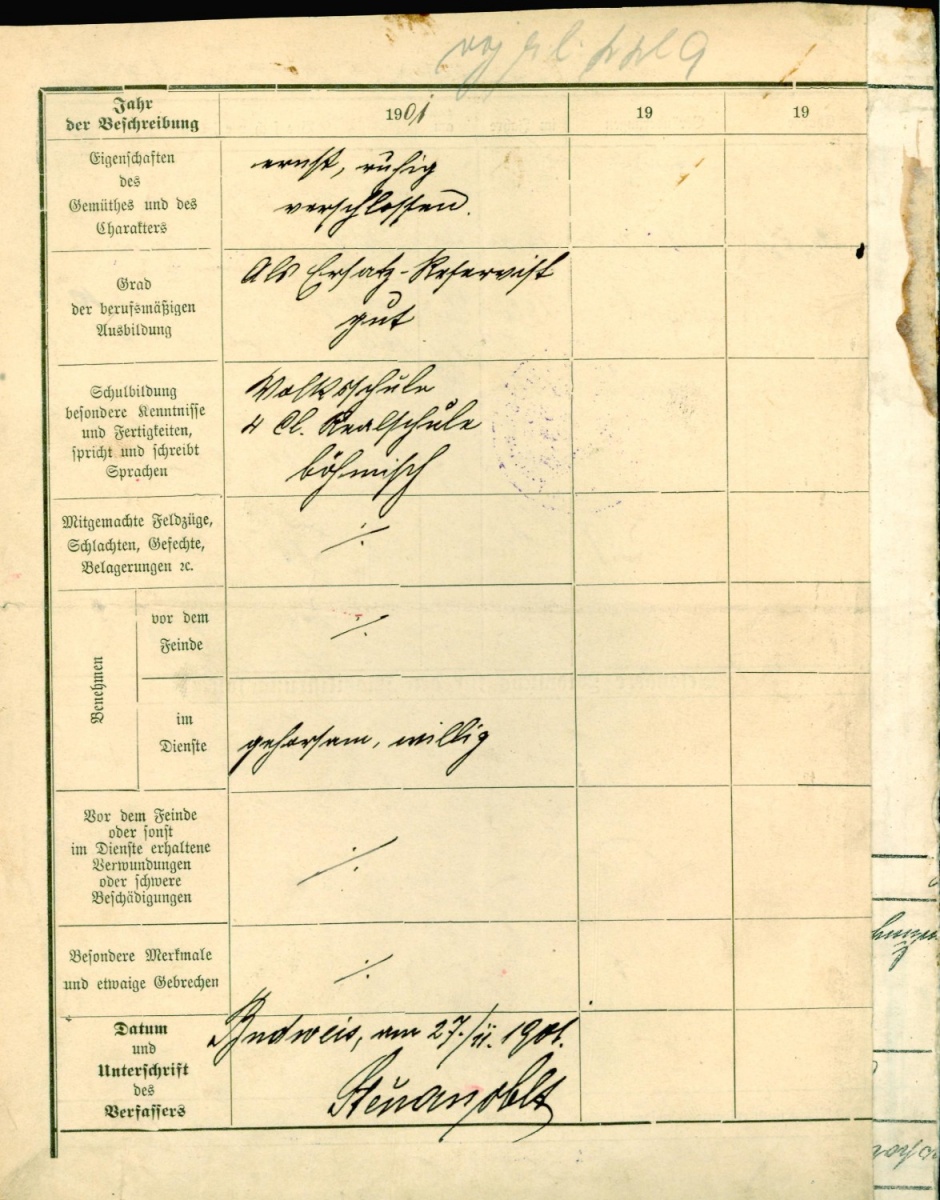 Jahr
der Beschreibung
1901
19
19
Eigenschaften
des
Gemüthes und des
Charakters
ernst, ruhig
verschlossen.
Grad
der berufsmäßigen
Ausbildung
Als Ersatz-Reservist
gut
Schulbildung
besondere Kenntnisse
und Fertigkeiten,
spricht und schreibt
Sprachen
Volksschule
4 Cl. Realschule
böhmisch
Mitgemachte Feldzüge,
Schlachten, Gefechte,
Belagerungen ꝛc.
⁒
Benehmen
vor dem
Feinde
⁒
im
Dienste
gehorsam, willig
Vor dem Feinde
oder sonst
im Dienste erhaltene
Verwundungen
oder schwere
Beschädigungen
⁒
Besondere Merkmale
und etwaige Gebrechen
⁒
Datum
und
Unterschrift
des
Verfassers
Budweis, am 27./II. 1901.